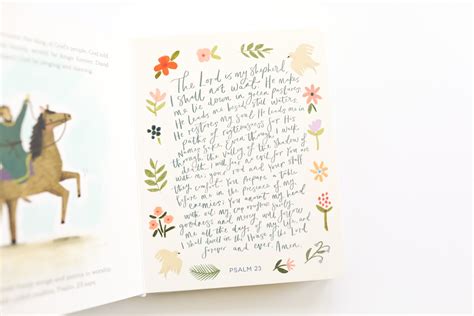 king of God's people. God told
God by singing and dancing
The Lord is my shepherd,
I shall not want. He makes
me lie down in green pastures.
He leads me beside still waters.
He restores my soul. He leads me
paths of righteousness for His
Name's sake. Even though I walk
through the valley of the shadow of
death, I will fear no evil for You are
with me; your rod and Your staff
they comfort. You prepare a table
before me in the presence of my
enemies; You anoint my head
with oil; my cup overflows. Surely
goodness and mercy will follow
me all the days of my life, and
I shall dwell in the House of the Lord
forever and ever. Amen.
PSALM 23